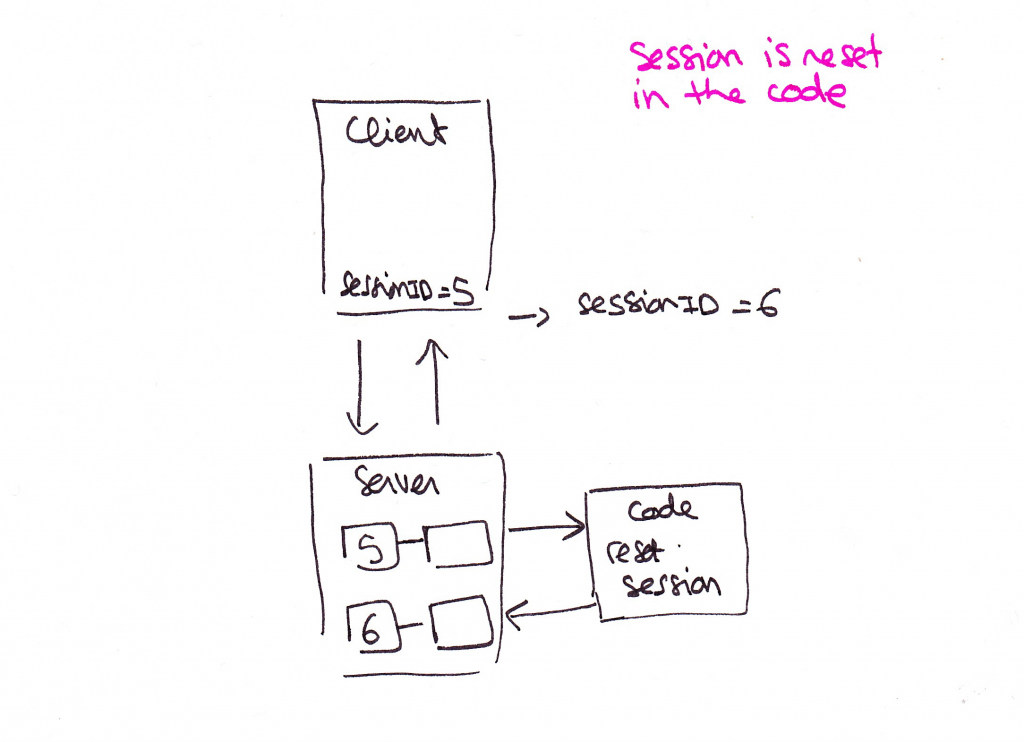 session is reset
in the code
Client
sessionID = 5
→ sessionID = 6
Server
5
6
code
reset
session